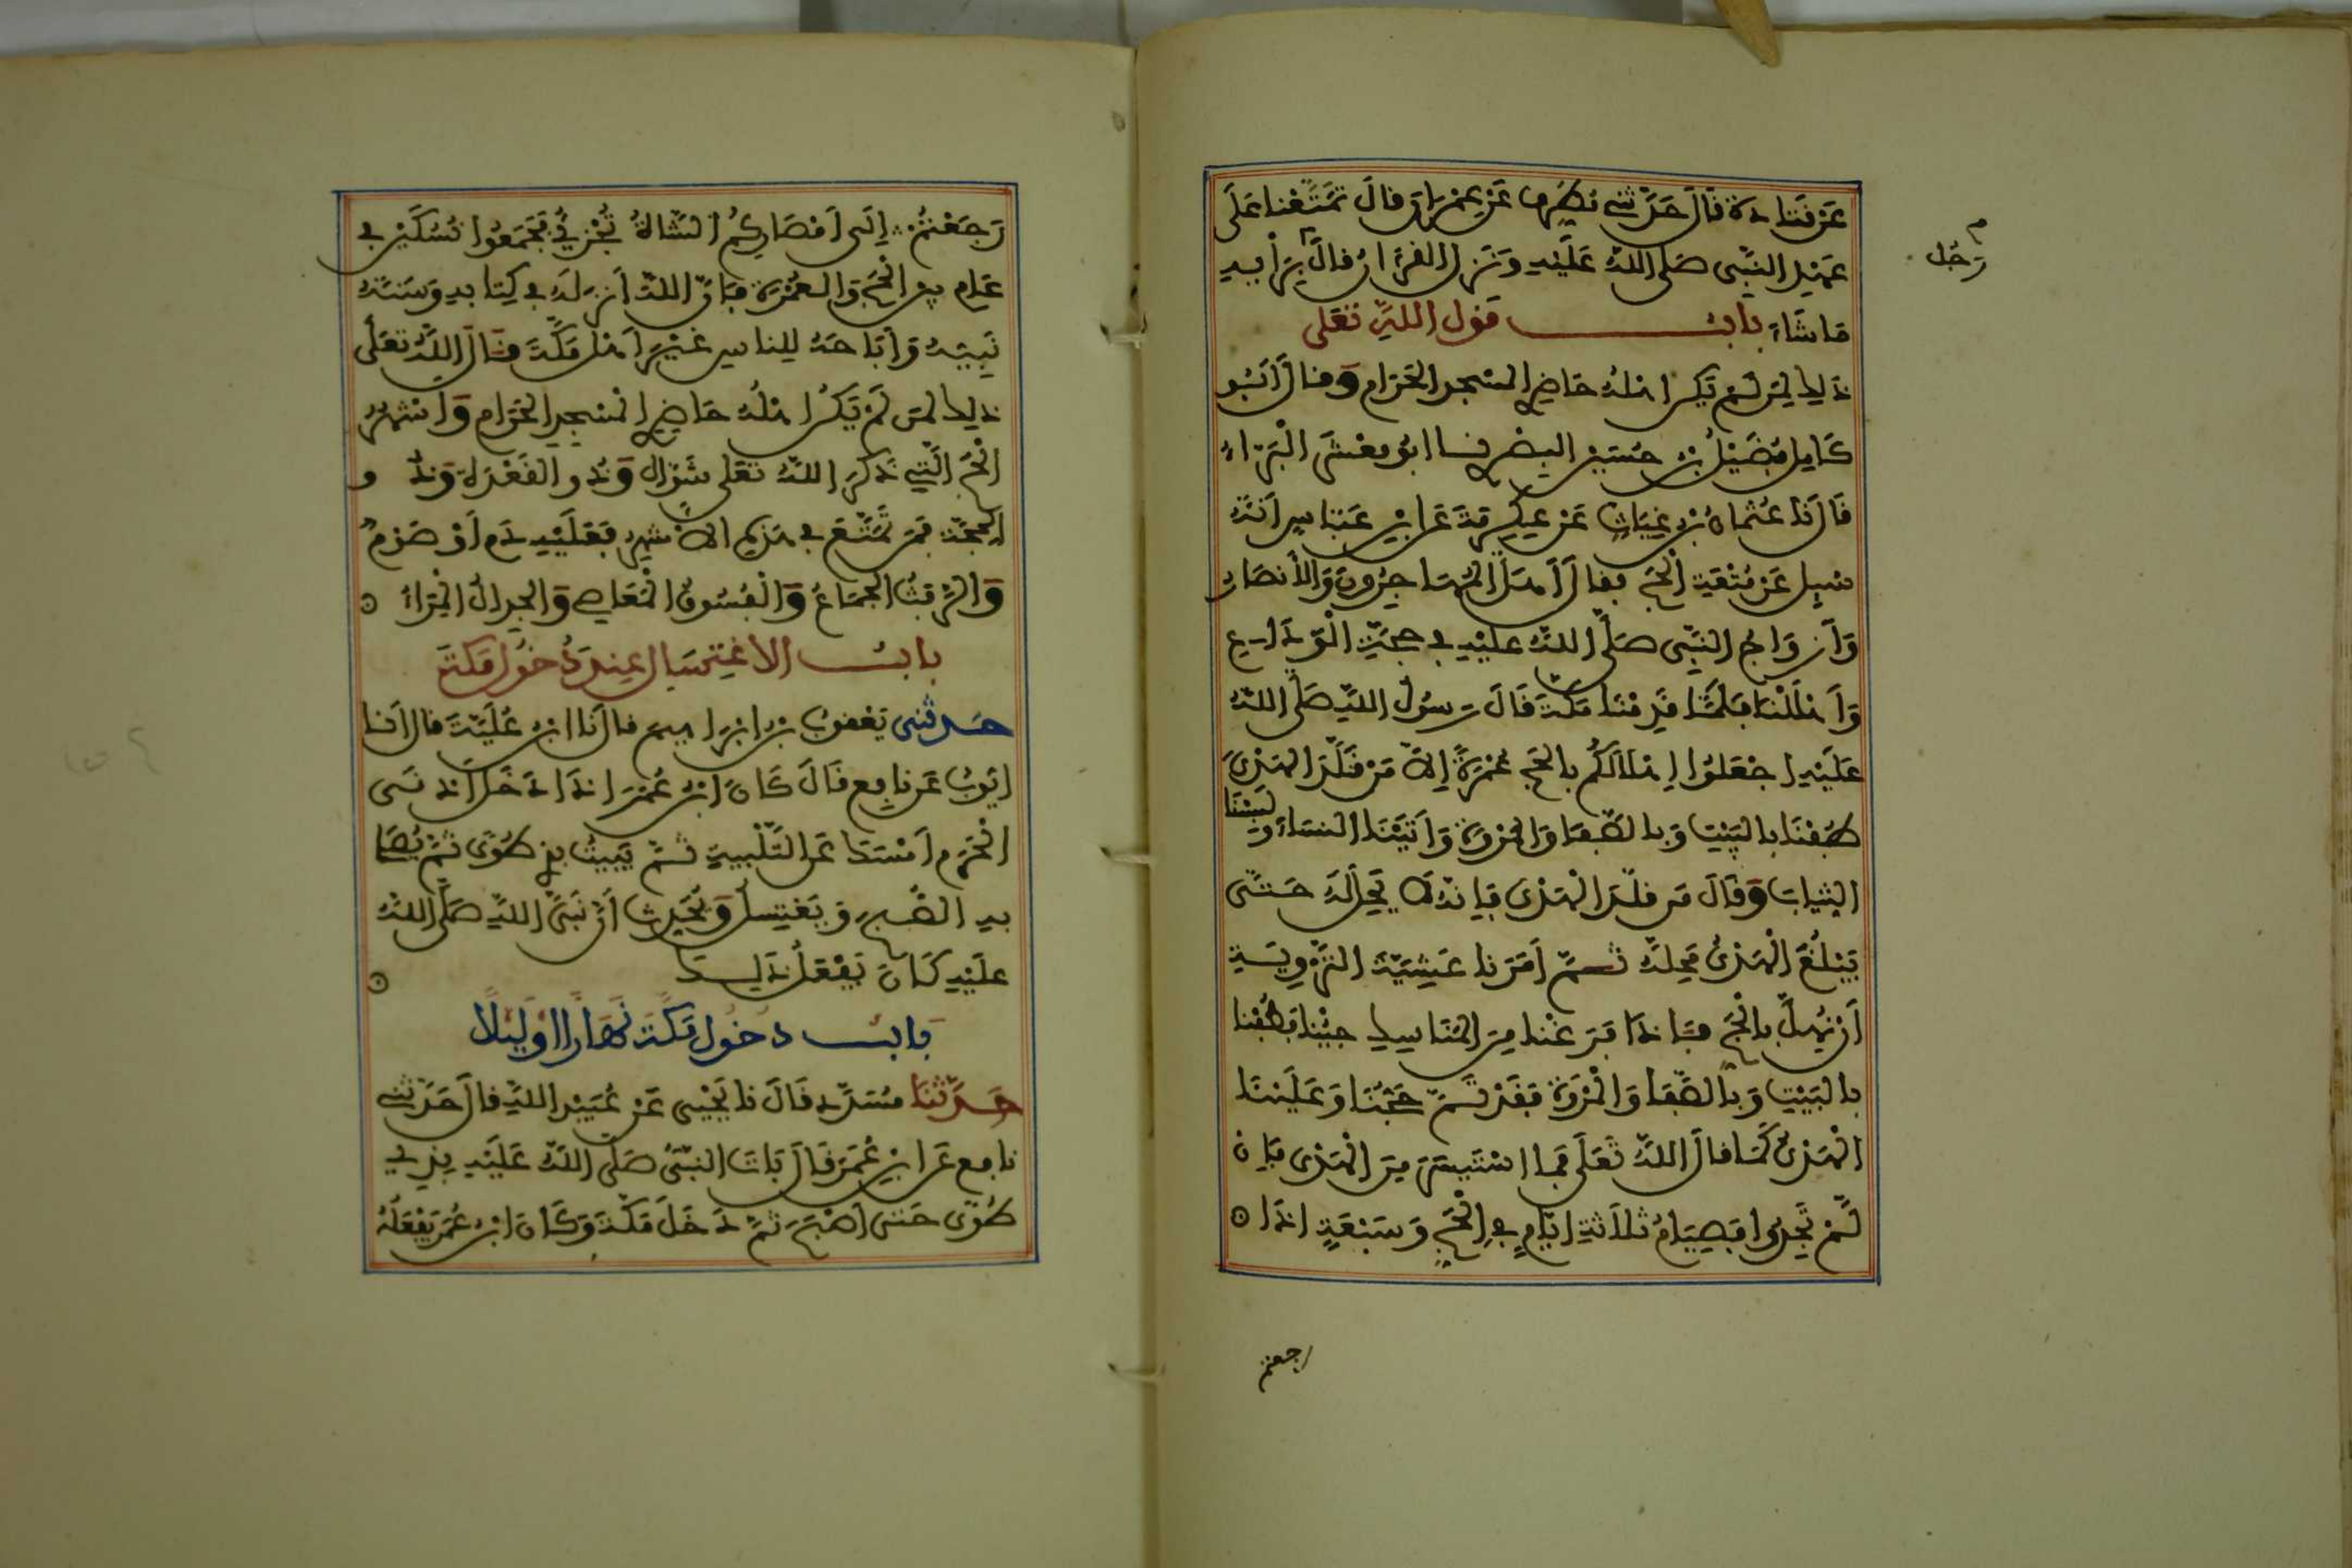 عَن قَتَادَةَ قَالَ حَدَّثَنِي مُطَرِّفٌ عَن عِمْرَانَ قَالَ تَمَتَّعْنَا عَلَى
عَهْدِ النَّبِي صَلى اللهُ عَلَيْهِ وَنَزَل القُرْآنُ قَالَ بِرَأْيِهِ
رَجُل
مَا شَاءَ بَابُ قَوْل اللهِ تَعَلى
ذَلِكَ لِمَن لَمْ يَكُن اهْلُهُ حَاضِرِي المَسْجِدِ الحَرَام وَقَالَ أَبُو
كَامِلٍ فُضَيْلُ بْنُ حُسَيْنٍ البَصْرِي نَا ابُو مَعْشَرٍ الْبَرَّاءُ
قَالَ نَا عُثْمَانُ بْنُ غِيَاثٍ عَنْ عِكْرِمَةَ عَنِ ابْنِ عَبَّاسٍ اَنَّهُ
سُئِلَ عَنْ مُتْعَةِ الْحَجِّ فَقَالَ أَهَلَّ الْمُهَاجِرُونَ وَالْأَنصَارُ
وَأَزْوَاجُ النَّبِي صَلَّى اللهُ عَلَيْهِ فِي حَجَّةِ الْوَدَاعِ
وَأَهْلَلْنَا فَلَمَّا قَدِمْنَا مَكَّةَ قَالَ رَسُولُ اللهِ صَلَّى اللهُ
عَلَيْهِ اجْعَلُوا إِهْلَالَكُمْ بِالحَجِّ عُمْرَةً إِلاَّ مَنْ قَلَّدَ الهَدْيَ
طُفْنَا بِالبَيْتِ وَبِالصَّفَا وَالمَرْوَةِ وَأَتَيْنَا النِّسَاءَ وَلَبِسْنَا
الثِّيَابَ وَقَالَ مَن قَلَّدَ الْهَدْيَ فَإِنَّهُ لَا يَحِلُّ لَهُ حَتَّى
يَبْلُغَ الْهَدْيُ مَحِلَّهُ ثُمَّ أَمَرَنَا عَشِيَّةَ التَّرْوِيَةِ
أَنْ نُهِلَّ بِالْحَجِّ فَإِذَا فَرَغْنَا مِنَ المَنَاسِكِ جِئْنَا فَطُفْنَا
بِالبَيْتِ وَبِالصَّفَا وَالْمَرْوَةِ فَقَدْ تَمَّ حَجُّنَا وَعَلَيْنَا
الْهَدْيُ كَمَا قَالَ اللهُ تَعَلَى فَمَا اسْتَيْسَرَ مِنَ الْهَدْيِ فَإِن
لَّمْ تَجِدُوا فَصِيَامُ ثَلَاثَةِ ايَّامٍ فِي الْحَجِّ وَسَبْعَةٍ اذَا
رجعتم
رَجَعْتُمُ إِلَى أَمْصَارِكُمُ الشَّاةُ تُجْزِي فَجَمَعُوا نُسُكَيْنِ فِي
عَامٍ بين الْحَجِّ وَالعُمْرَةِ فَإِنَّ اللهَ أَنزَلَهُ فِي كِتَابِهِ وَسَنَّهُ
نَبِيُّهُ وَأَبَاحَهُ لِلنَّاسِ غَيْرَ أَهْلِ مَكَّةَ قَالَ اللهُ تَعَلَى
ذَلِكَ لمَن لَمْ يَكُنْ اهْلُهُ حَاضِرِي الْمَسْجِدِ الحَرَام وَأَشْهُرُ
الْحَجِّ الَّتِي ذَكَرَ اللهُ تَعَلَى شَوَّالٌ وَذُو القَعْدَةِ وَذُو
الحِجَّةِ فَمَن تَمَتَّعَ فِي هَذِهِ الأَشْهُرِ فَعَلَيْهِ دَم أَوْ صَوْمٌ
وَالرَّفَثُ الجِمَاعُ وَالْفُسُوقُ الْمَعَاصِي وَالْجِدَالُ الْمِرَاءُ
بَابُ الاغْتِسَالِ عِندَ دُخُولِ مَكَّةَ
حَدَّثَنِي يَعْقُوبُ بْنُ ابْرَاهِيمَ قَالَ نَا ابْنُ عُلَيَّةَ قَالَ أَنَا
ايُّوبُ عَن نَافِعٍ قَالَ كَانَ ابْنُ عُمَرَ اذَا دَخَلَ أَدْنَى
الْحَرَمِ أَمْسَكَ عَنِ التَّلْبِيَةِ ثُمَّ يَبِيتُ بِذِي طُوًى ثُمَّ يُصَلي
بِهِ الصُّبْحَ وَيَغْتَسِلُ وَيُحَدِّثُ أَنَّ نَبِيَّ اللهِ صَلَّى اللهُ
عَلَيْهِ كَانَ يَفْعَلُ ذَلِكَ
بَابُ دُخُولِ مَكَّةَ نَهَارًا اوْ لَيْلًا
حَدَّثَنَا مُسَدَّد قَالَ نَا يَحْيَى عَنْ عُبَيْدِ اللهِ قَالَ حَدَّثَنِي
نَافِع عَنِ ابْنِ عُمَرَ قَالَ بَاتَ النَّبِيُّ صَلى اللهُ عَلَيْهِ بِذِي
طُوًى حَتَّى اصْبَحَ ثُمَّ دَخَلَ مَكَّةَ وَكَانَ ابْنُ عُمَرَ يَفْعَلُهُ